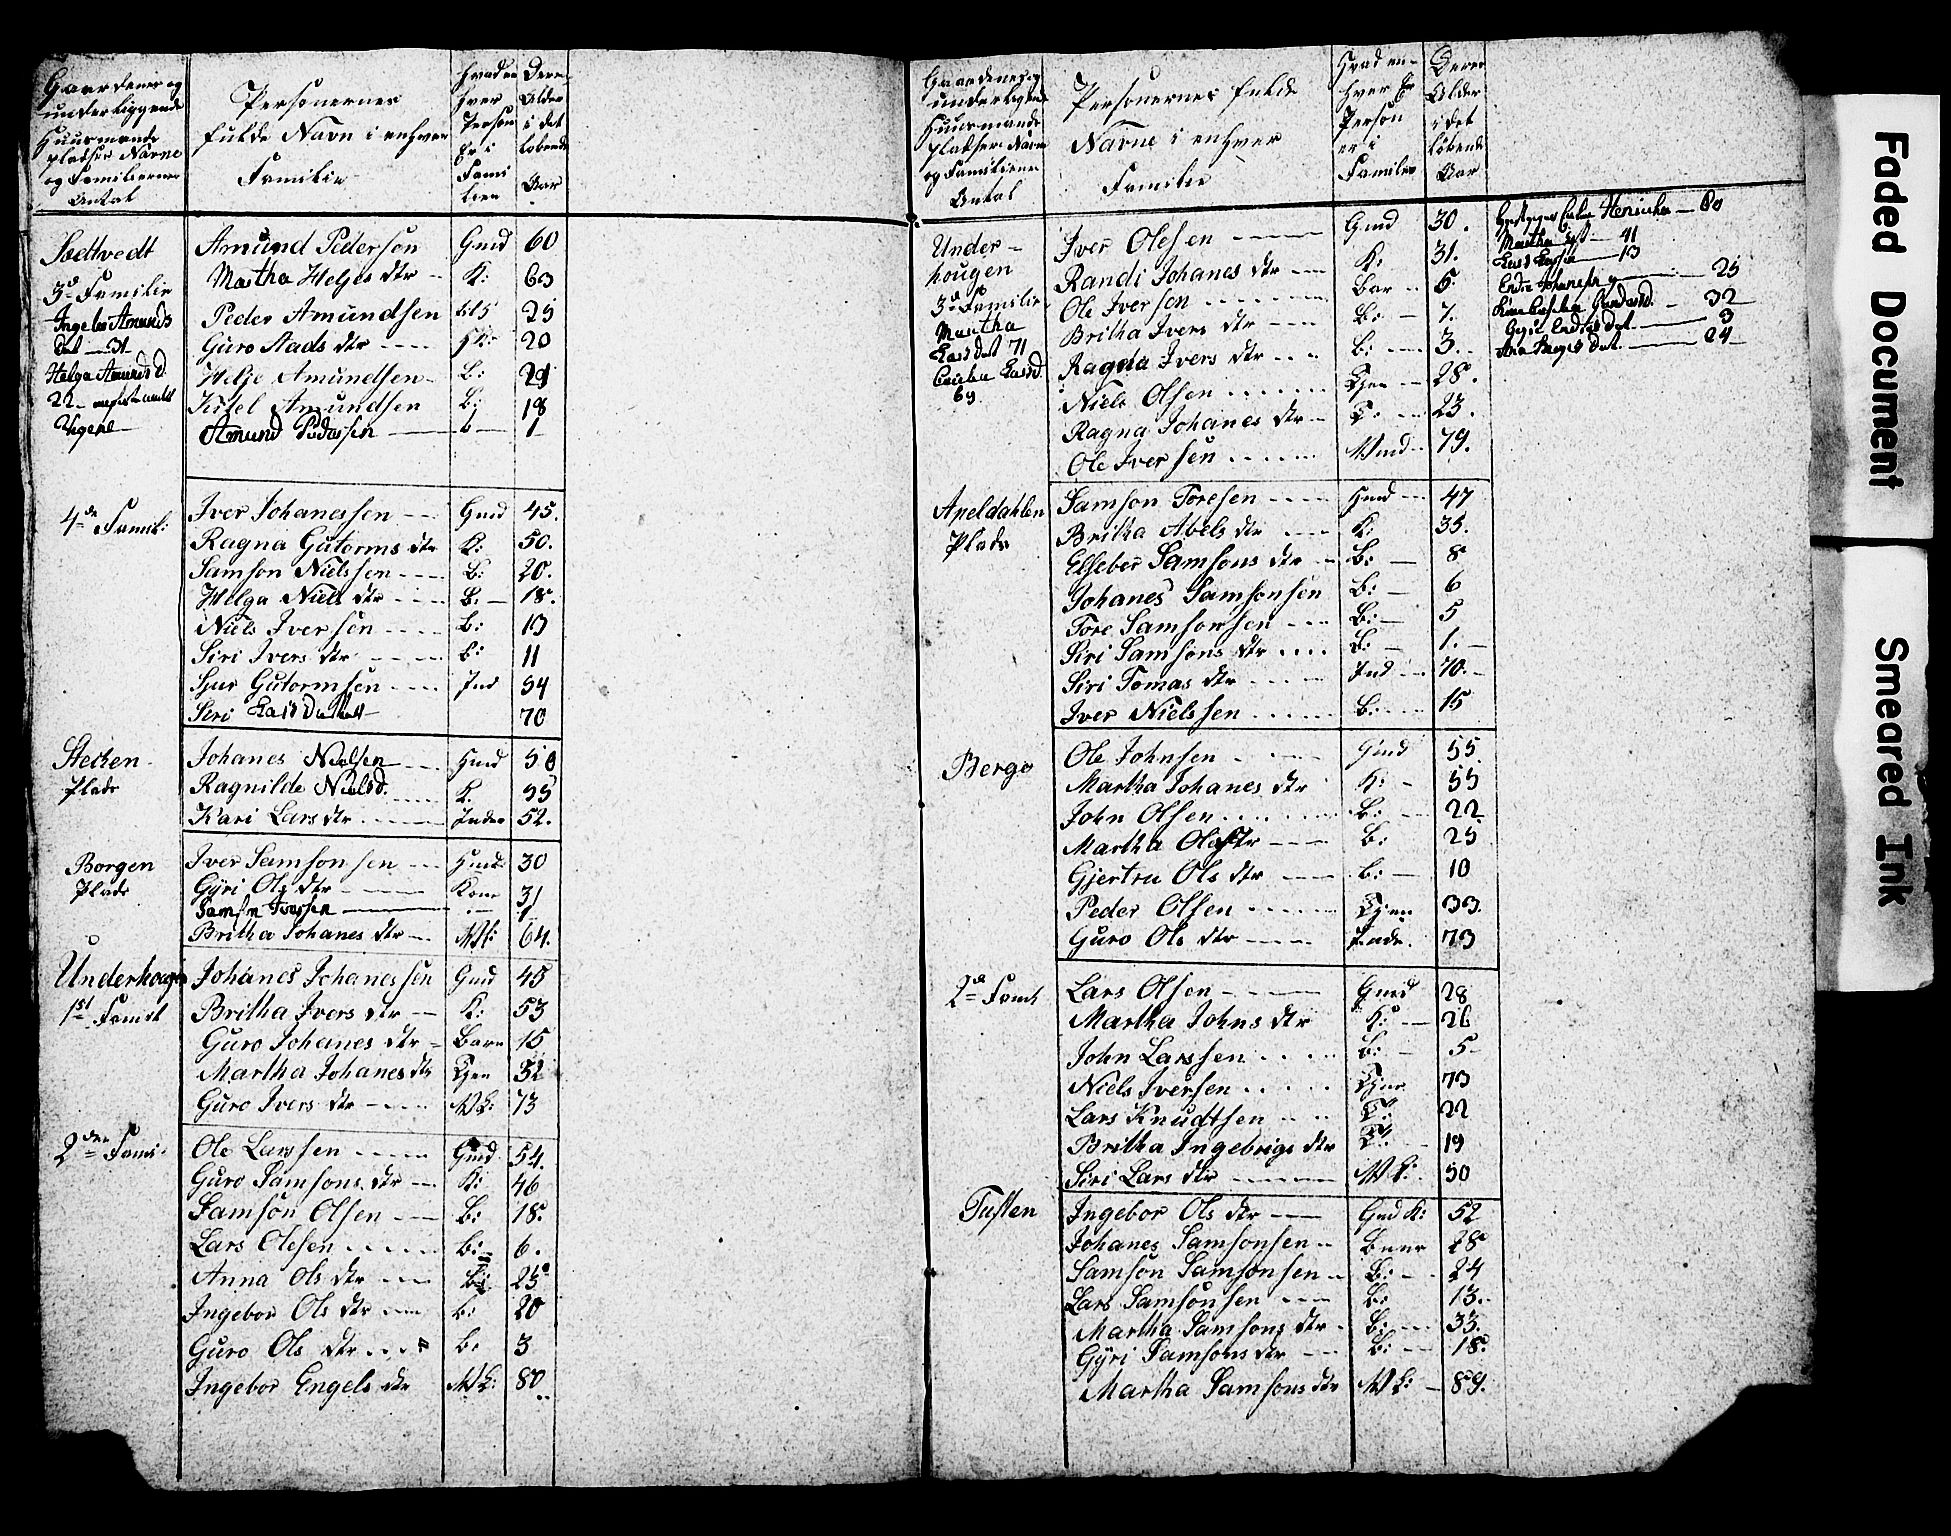 Gaardenes og
underliggende
Huusmands
pladser Navne
og Familiernes
Antal
Personernes
fulde Navn i enhver
Familie
hvad en
hver
Person
Er i
Fami
lien
Deres
Alder
i det
løbende
Aar
Sædtvedt
3d Familie
Ingebor Amunds
dat — 31
Helga Amunds d.
22
Amund Pedersön Gmd 60
Martha Helges dtr K: 63
Peder Amundsen 25
Guro Aads dtr K: 20
Helje Amundsen B: 21
Kittel Amundsen B: 18
Amund Pedersen b 1
4de Famil:
Iver Johanessen Gmd 45.
Ragna Gutorms dtr K: 50.
Samson Nielssen B: 20.
Helga Niels dtr B. 18.
Niels Iversen B: 13
Siri Ivers dtr B: 11
Sjur Gutormsen Ind 54
Siri Lars Datter 70
Stecken
Plads
Johanes Nielsen Hmd 50
Ragnilde Nielsd. K. 55
Kari Lars dtr Inder 52.
Borgen
Plads
Iver Samsonsen Hmd 30
Gÿri Ols dtr Kone 31
Samson Iversen 1
Britha Johanes dtr MK: 64.
Underhougen
1st Famil
Johanes Johanessen Gmd 45
Britha Ivers dtr K: 53
Guro Johanes dtr Barn 15
Martha Johanes dtr Tjen 32
Guro Ivers dtr MK: 73
2den Fami:
Ole Larssen Gmd 54.
Guro Samsons dtr K: 46
Samson Olsen B: 18.
Lars Olesen B: 6.
Anna Ols dtr B: 25
Ingebor Ols dtr B: 20
Guro Ols dtr B. 3
Ingebor Engels dtr MK: 80
Gaardenes og
underligende
Huusmands
pladser Navn
og Familiens
Antal
Personernes fulde
Navne i enhver
Familie
Hvad en-
hver
Person
er i
Familien
Deres
Alder
i det
løbende
Aar
Under-
hougen
3d Familie
Martha
Larsdat 71
Larsd.
69
Iver Olesen Gmd 30.
Randi Johanes dtr K: 31.
Ole Iversen Bar 6.
Britha Ivers dtr B: 7.
Ragna Ivers dtr B: 3.
Niels Olsen Tjen 28.
Ragna Johanes dtr T: 23.
Ole Iversen Mmd 79.
Henicka — 80
Martha — 41
13
Endre Johanesen 25
32
Endresdat. 3
dat. 24
Apeldahlen
Plads
Samson Toresen Hmd 47
Britha Abels dtr K: 35.
Elseber Samsons dtr B: 8
Johanes Samsonsen B: 6
Tore Samsonsen B: 5
Siri Samsons dtr B: 1.
Siri Tomas dtr Ind 70.
Iver Nielssen B: 15
Bergo
Ole Johnsen Gmd 55.
Martha Johanes dtr K: 55
John Olsen B: 22
Martha Olsdtr B: 25
Gjertru Ols dtr b: 10
Peder Olsen Tjen 33.
Guro Ols dtr Inds. 73
2d Famil
Lars Olsen Gmd 28
Martha Johns dtr K: 26
John Larssen B: 5
Niels Iversen Tjen 73
Lars Knudtsen T: 22
Britha Ingebrigs dtr T: 19
Siri Lars dtr MK: 50
Tuften
Ingebor Ols dtr Gmd K: 52
Johanes Samsonsen Barn 28
Samson Samsonsen B: 24
Lars Samsonsen B: 13.
Martha Samsons dtr B: 33.
Gÿri Samsons dtr B: 18.
Martha Samsons dtr MK: 89.
Faded Document
Smeared Ink